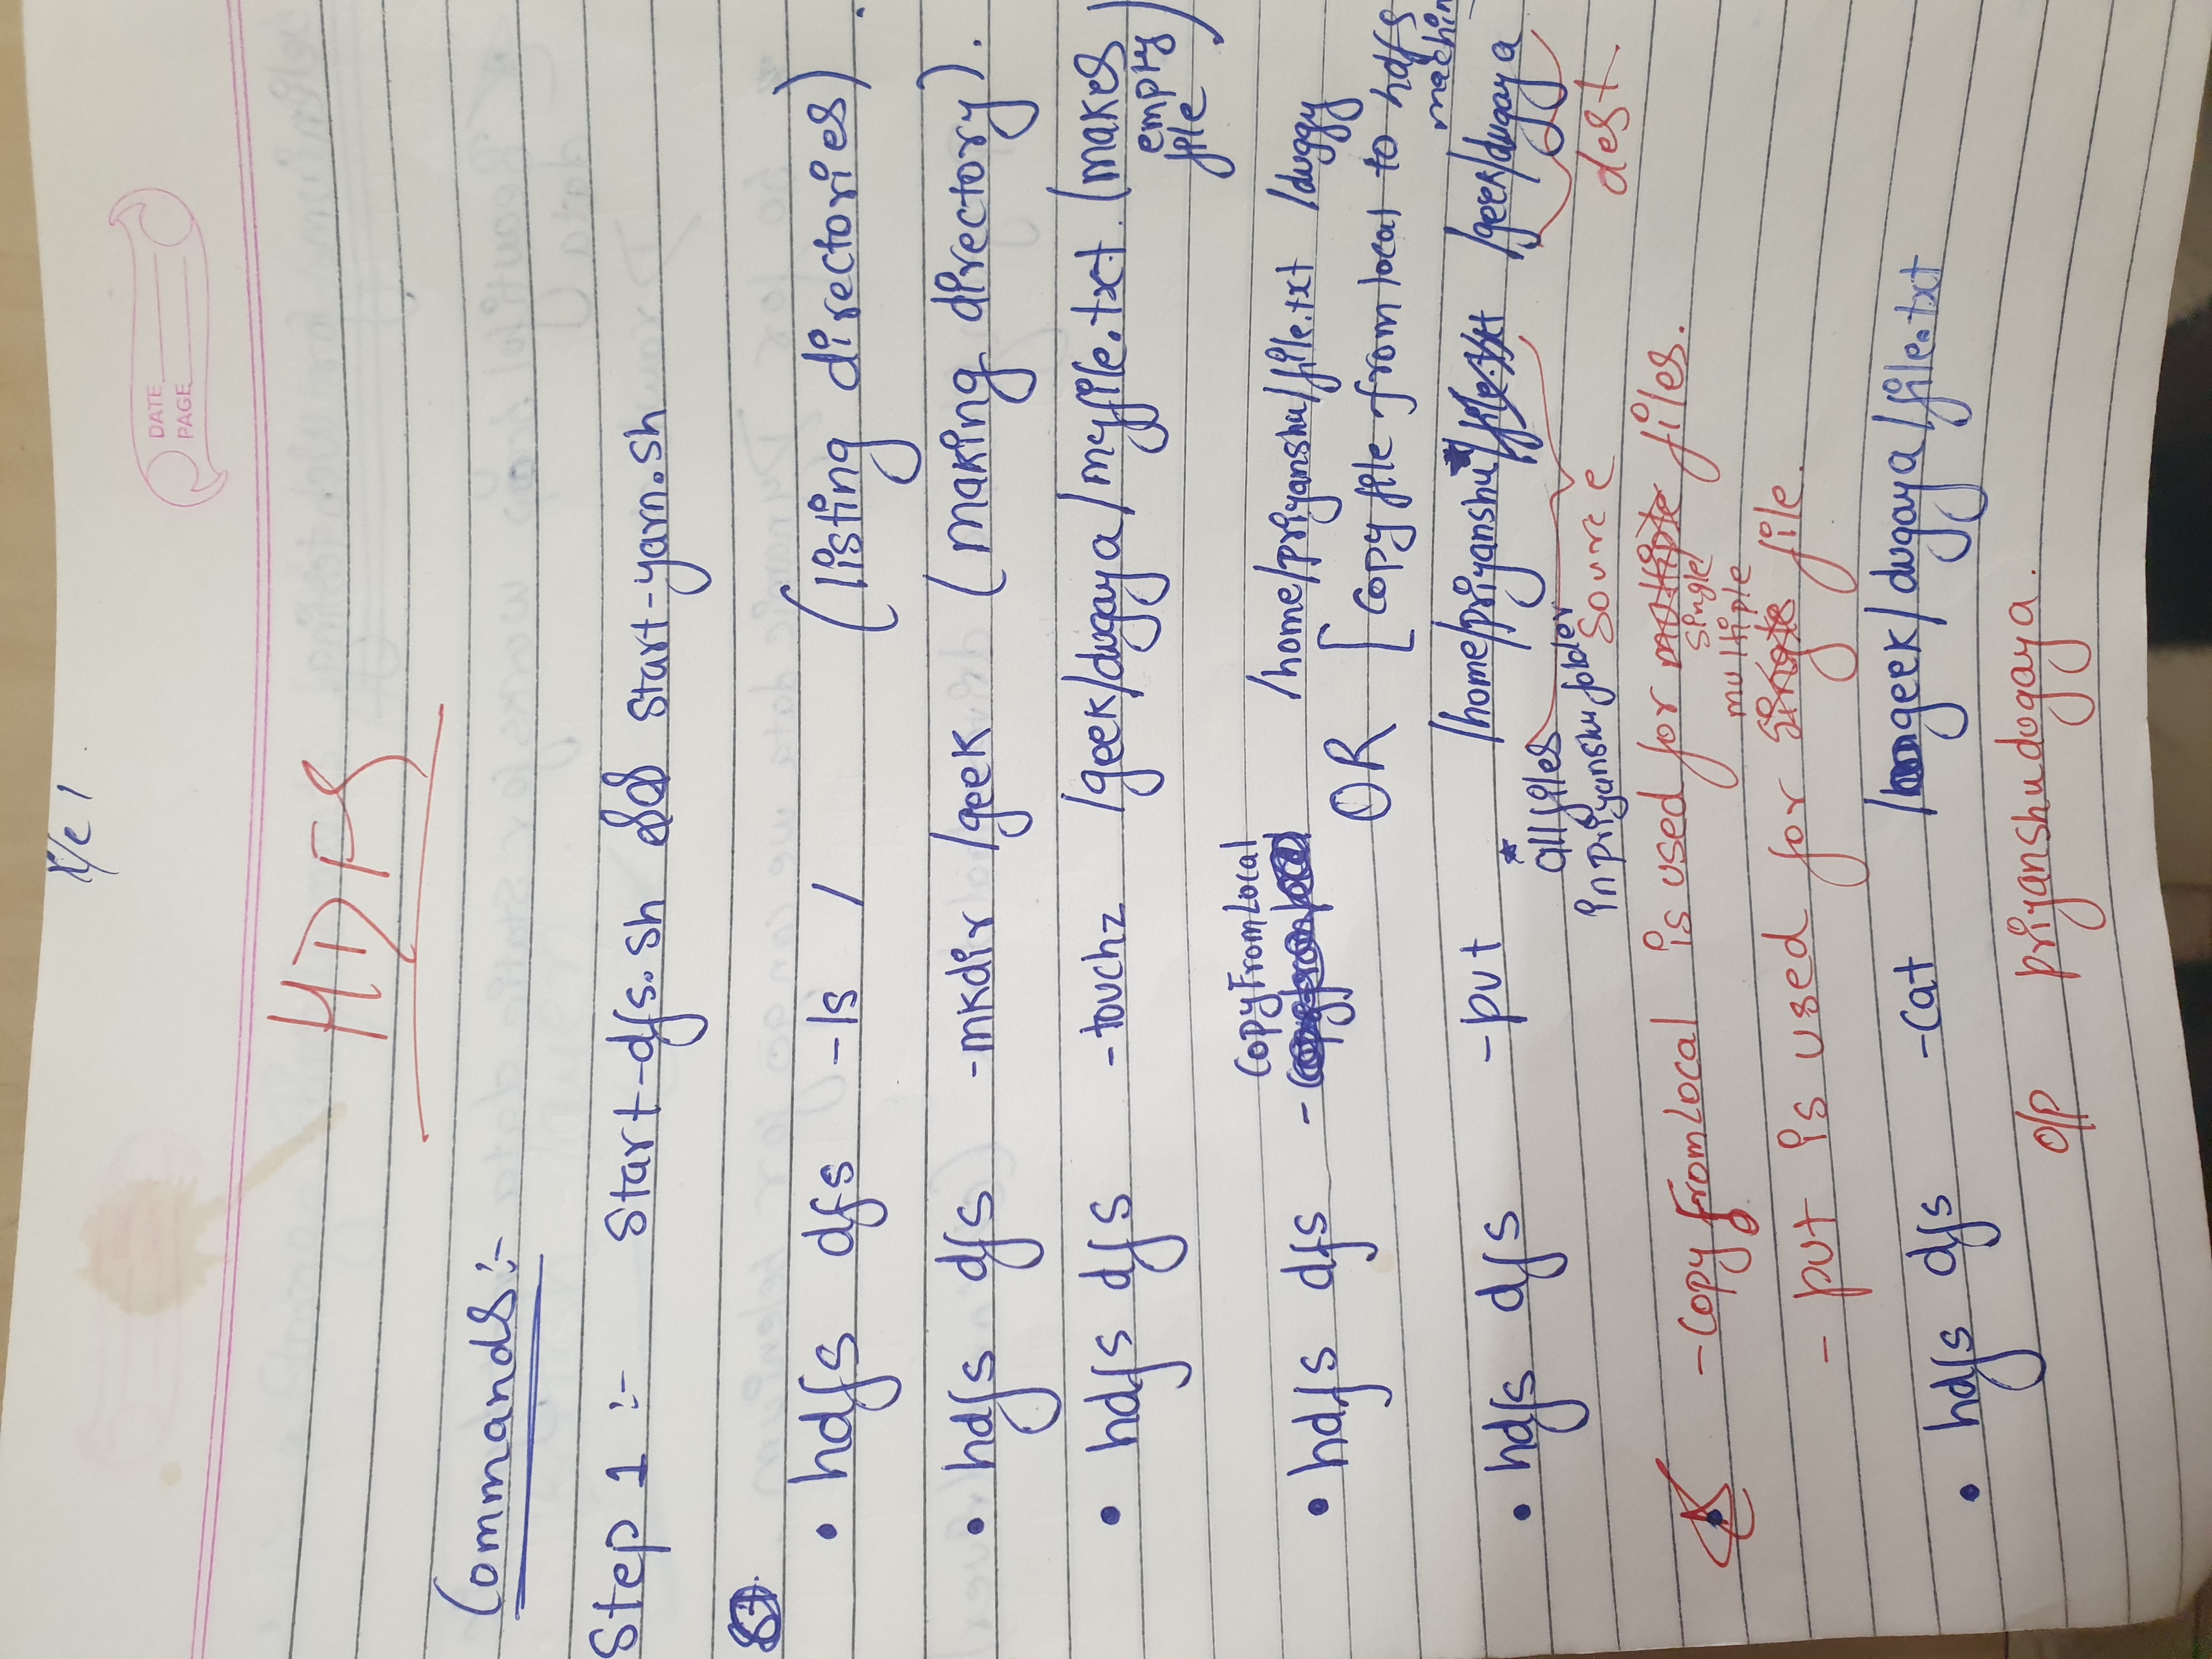 DATE
PAGE
HDFS
Commands :-
Step 1 :- Start-dfs.sh && start-yarn.sh
• hdfs dfs -ls / (listing directories).
• hdfs dfs -mkdir /geek (making directory).
• hdfs dfs -touchz /geek/dugaya/myfile.txt. (makes
empty
file)
CopyFromLocal
• hdfs dfs - /home/priyanshu/file.txt /duggy
OR [Copy file from local to hdfs
machin
• hdfs dfs -put /home/priyanshu*/file.txt /geek/dugaya
* all files
in priyanshu folder
source dest.
- Copy fromLocal is used for multiple files.
single
multiple
- put is used for single file.
• hdfs dfs -cat /geek/dugaya/file.txt
o/p priyanshudugaya.